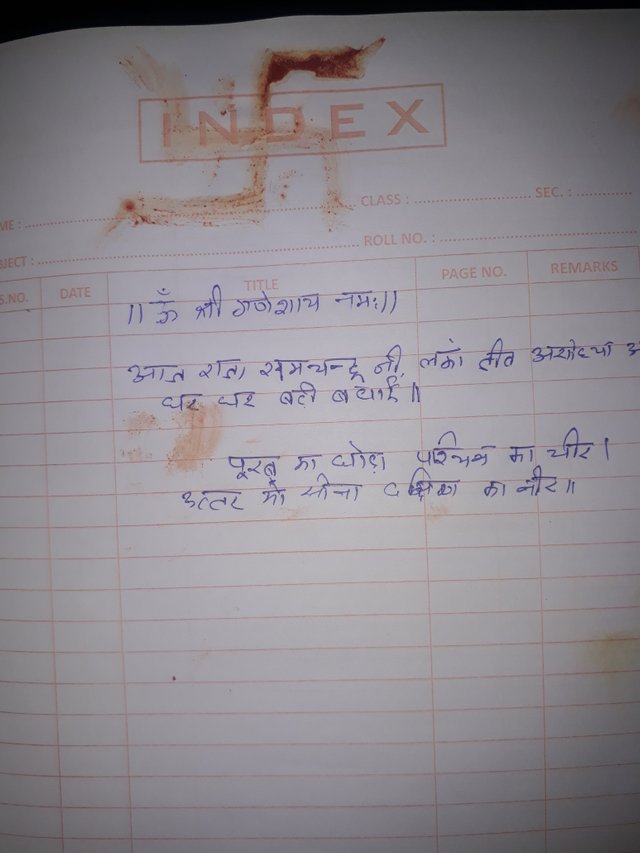 INDEX
ME : CLASS : SEC. :
JECT : ROLL NO. :
S.NO. DATE TITLE PAGE NO. REMARKS
।। ॐ श्री गणेशाय नमः।।
आज राजा रामचन्द्र जी, लंका जीत अयोध्या
घर घर बटी बधाई॥
पूरब का घोड़ा पश्चिम का चीर।
उत्तर का सोना दक्षिण का नीर॥